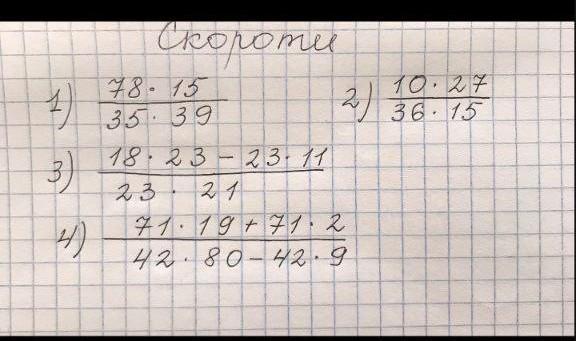 Скороти
1) 78 · 15 / 35 · 39 2) 10 · 27 / 36 · 15
3) 18 · 23 − 23 · 11 / 23 · 21
4) 71 · 19 + 71 · 2 / 42 · 80 − 42 · 9